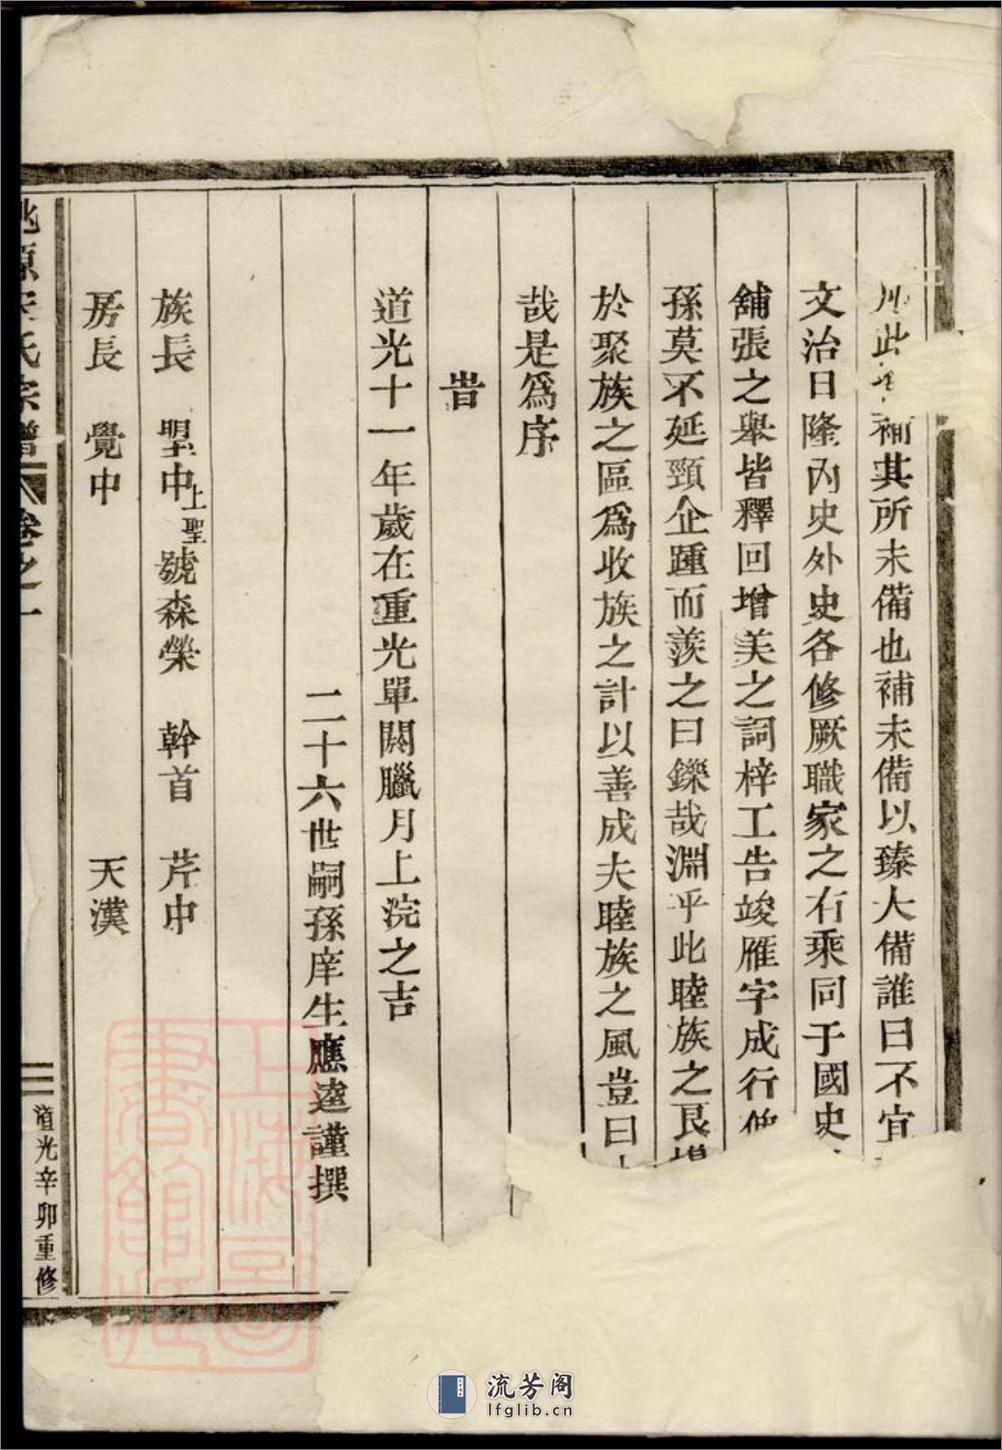 此補其所未備也補未備以臻大備誰曰不宜
文治日隆內史外史各修厥職家之右乘同于國史
舖張之舉皆釋回增美之詞梓工告竣雁字成行他
孫莫不延頸企踵而羨之曰鑠哉淵乎此睦族之良
於聚族之區爲收族之計以善成夫睦族之風豈曰
哉是爲序
旹
道光十一年歲在重光單閼臘月上浣之吉
二十六世嗣孫庠生應逵謹撰
族長 曌中上聖號森榮 幹首 芹中
房長 覺中 天漢
桃源宋氏宗譜 卷之一 道光辛卯重修
上海圖書館藏
流芳阁
lfglib.cn